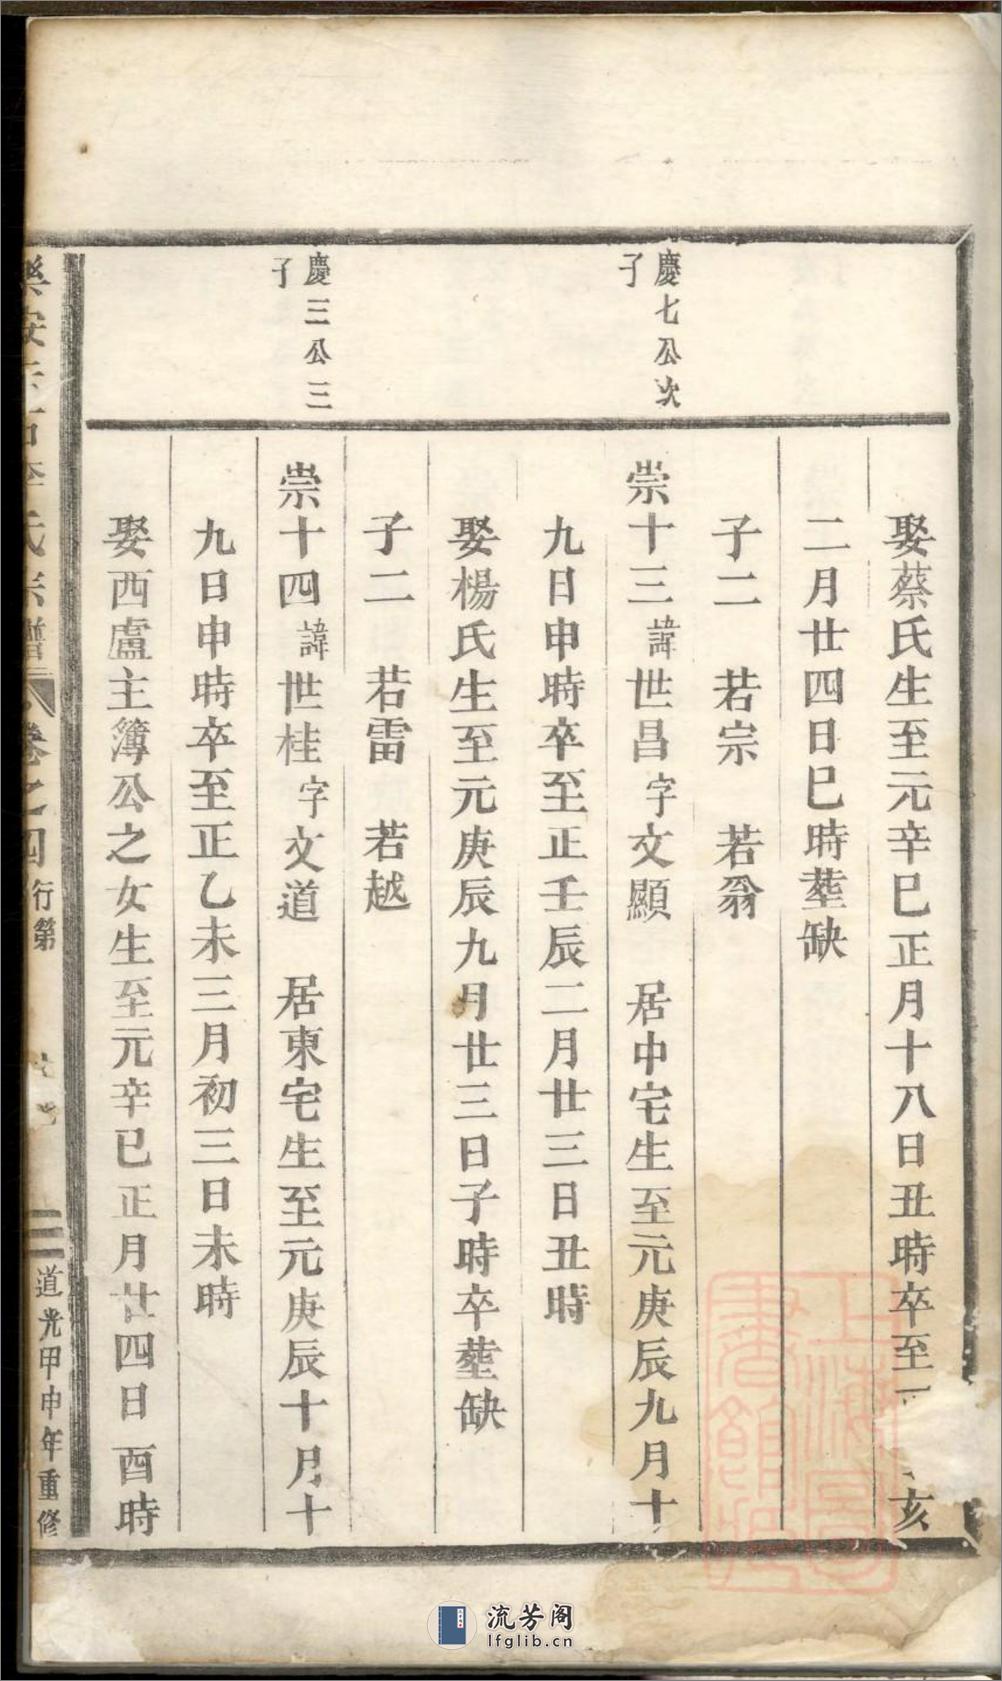 娶蔡氏生至元辛巳正月十八日丑時卒至 亥
二月廿四日巳時塟缺
子二　若宗　若翁
慶七公次
子
崇十三諱世昌字文顯　居中宅生至元庚辰九月十
九日申時卒至正壬辰二月廿三日丑時
娶楊氏生至元庚辰九月廿三日子時卒塟缺
子二　若雷　若越
慶三公三
子
崇十四諱世桂字文道　居東宅生至元庚辰十月十
九日申時卒至正乙未三月初三日未時
娶西盧主簿公之女生至元辛巳正月廿四日酉時
樂安 李氏宗譜 卷之四 行第 道光甲申年重修
上海圖書館藏
流芳阁
lfglib.cn